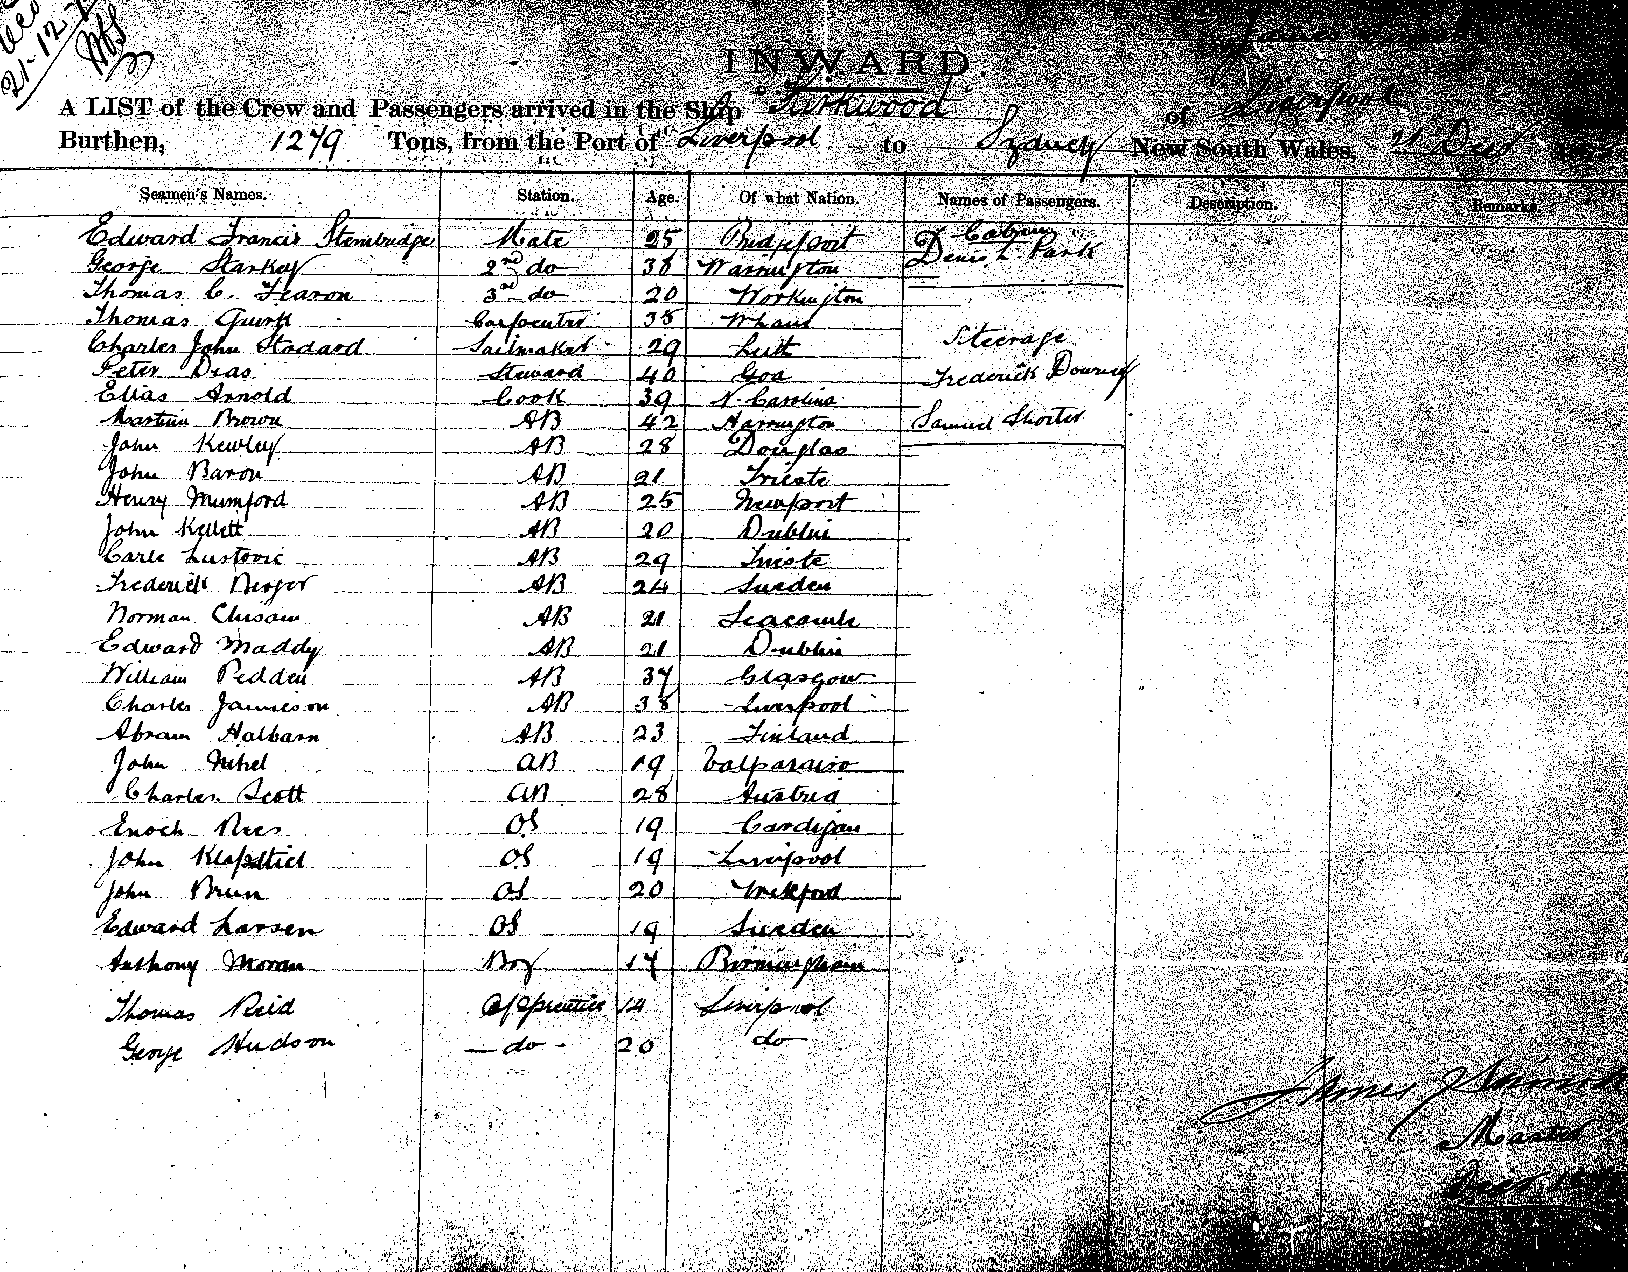 21-12-7
INWARD.
A LIST of the Crew and Passengers arrived in the Ship "Kirkwood" of Liverpool
Burthen, 1279 Tons, from the Port of Liverpool to Sydney New South Wales, 21 Decr
Seamen's Names. Station. Age. Of what Nation. Names of Passengers. Description. Remarks
Edward Francis Stembridge Mate 25 Bridgeport Cabin
George Starkey 2nd do 38 Warrington Denis L. Park
Thomas C. Fearon 3rd do 20 Workington
Thomas Quirk Carpenter 38
Charles John Stodard Sailmaker 29 Leith Steerage
Peter Dias Steward 40 Goa Frederick Downey
Elias Arnold Cook 39 N. Carolina
Martin Brown AB 42 Harrington Samuel Shorter
John Kewley AB 28 Douglas
John Baron AB 21 Trieste
Henry Mumford AB 25 Newport
John Kellett AB 20 Dublin
Carlo Lustovic AB 29 Trieste
Frederick Berger AB 24 Sweden
Norman AB 21 Seacombe
Edward Maddy AB 21 Dublin
William Pedden AB 37 Glasgow
Charles Jamieson AB 38 Liverpool
Abram Halbarn AB 23 Finland
John AB 19 Valparaiso
Charles Scott AB 28 Austria
Enoch Rees OS 19 Cardigan
John OS 19 Liverpool
John OS 20 Wexford
Edward Larsen OS 19 Sweden
Anthony Moran Boy 17 Birmingham
Thomas Reid Apprentice 14 Liverpool
George Hudson - do - 20 do
James
Master